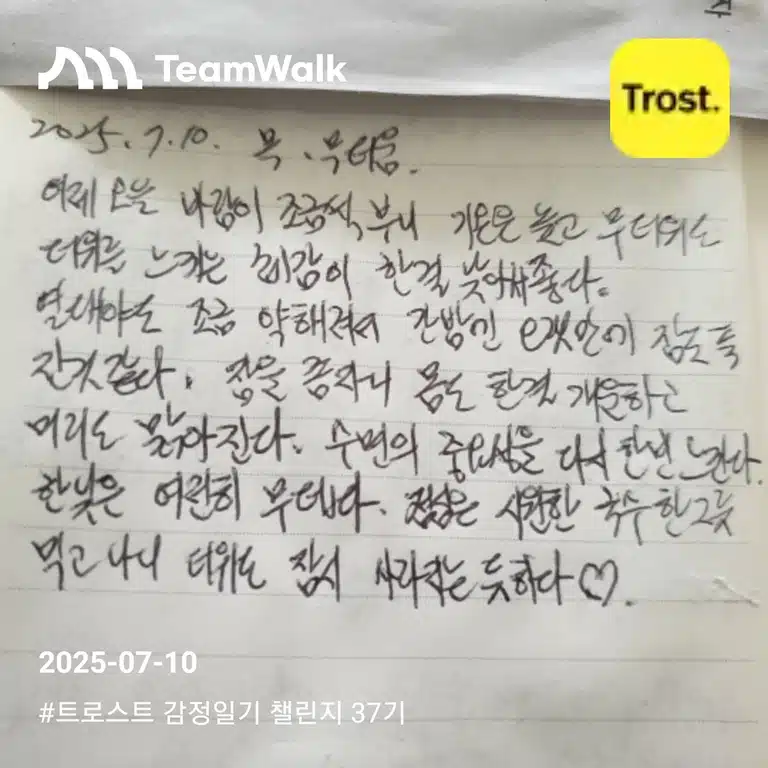 자
TeamWalk
Trost.
2025. 7. 10. 목. 무더움.
어제 오늘 바람이 조금씩 부니 기온은 높고 무더위도
더위를 느끼는 체감이 한결 낮아져 좋다.
열대야도 조금 약해져서 간밤엔 오랫만에 잠도 푹
잔것 같다. 잠을 푹자니 몸도 한결 개운하고
머리도 맑아진다. 수면의 중요성을 다시 한번 느낀다.
한낮은 여전히 무덥다. 점심은 시원한 국수 한그릇
먹고 나니 더위도 잠시 사라지는 듯하다♡.
2025-07-10
#트로스트 감정일기 챌린지 37기